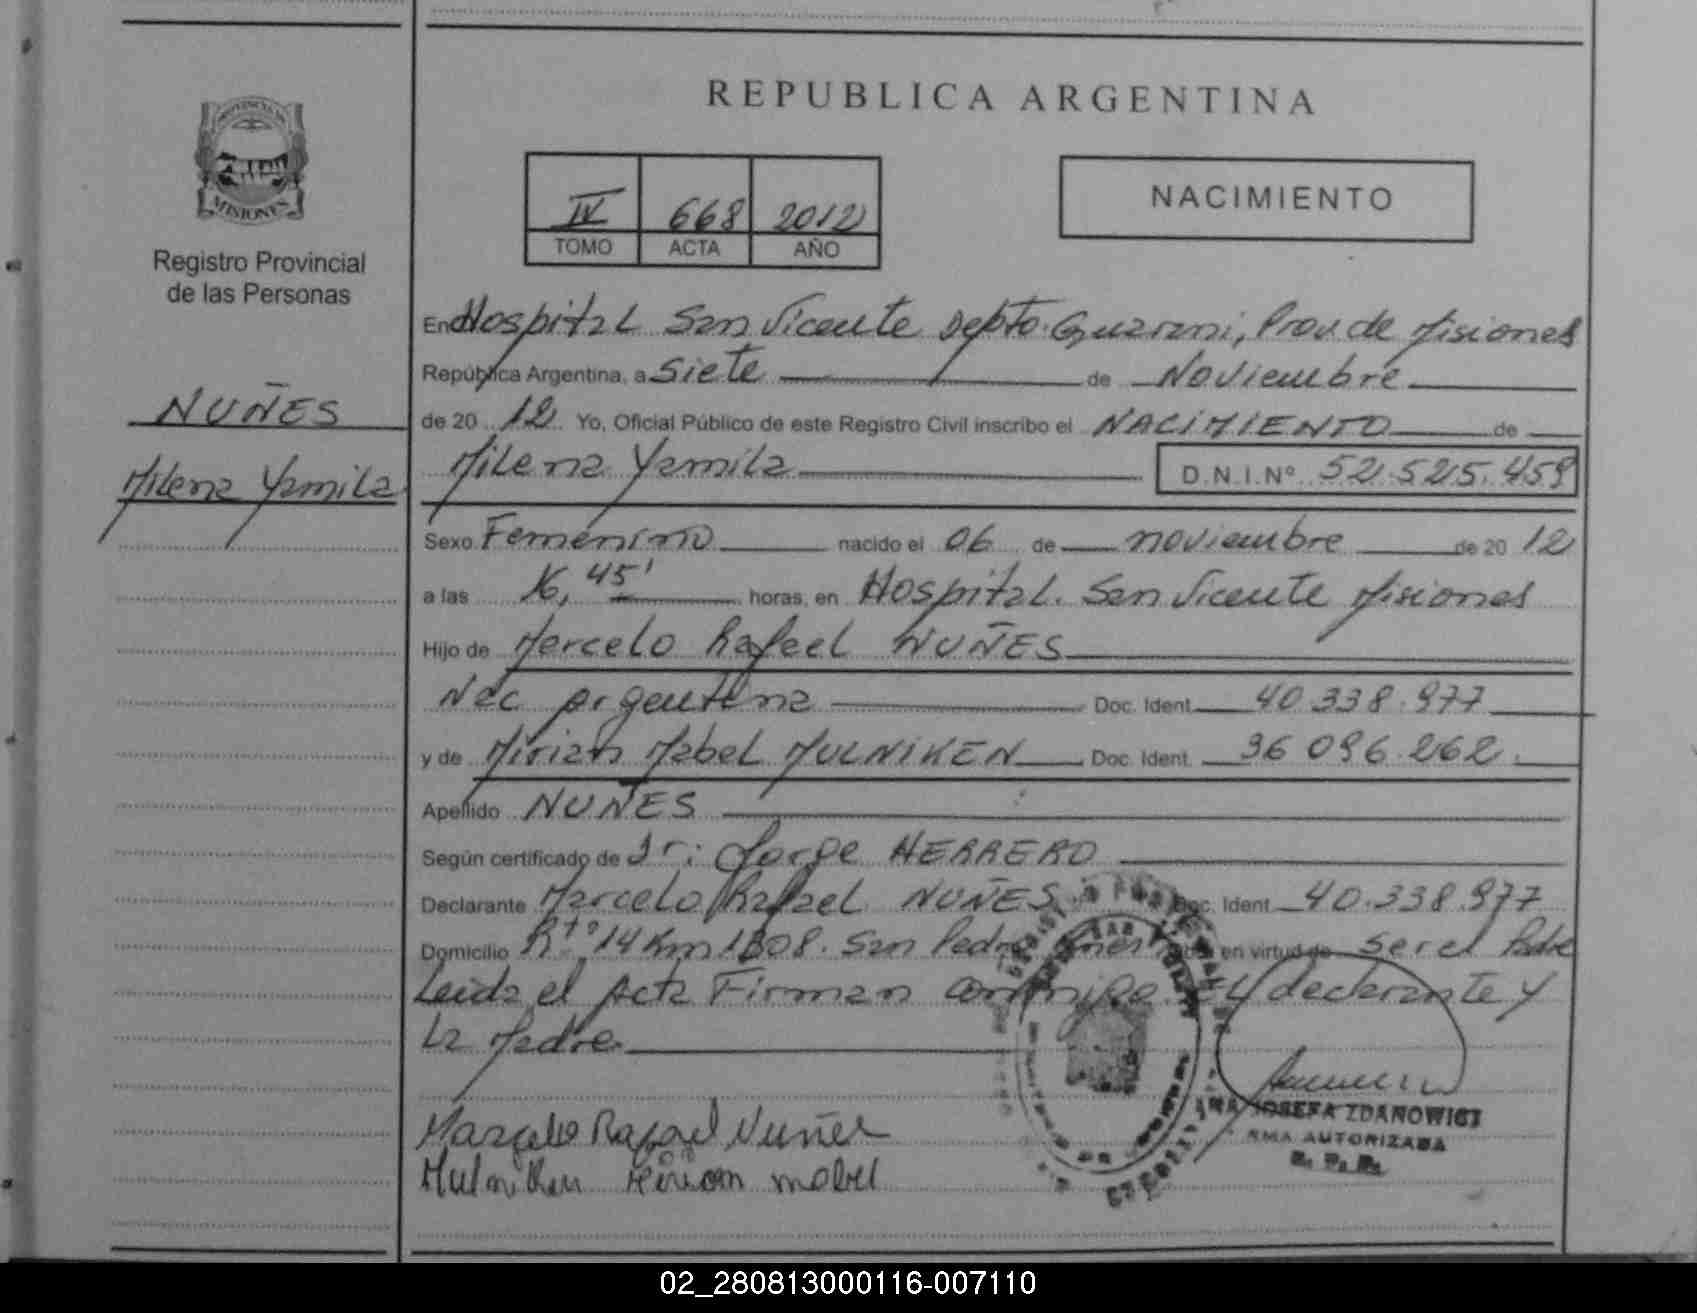 REPUBLICA ARGENTINA
PROVINCIA DE
MISIONES
Registro Provincial
de las Personas
NUÑES
Milena Yamila
IV 668 2012
TOMO ACTA AÑO
NACIMIENTO
En Hospital San Vicente Depto. Guarani, Prov. de Misiones
República Argentina, a Siete de Noviembre
de 20 12 Yo, Oficial Público de este Registro Civil inscribo el NACIMIENTO de
Milena Yamila D.N.I.Nº 52.525.459
Sexo Femenino nacido el 06 de noviembre de 20 12
a las 16,45' horas, en Hospital. San Vicente Misiones
Hijo de Marcelo Rafael NUÑES
Nac argentina Doc. Ident. 40.338.977
y de Mirian Mabel MULNIKEN Doc. Ident. 36 096.262.
Apellido NUÑES
Según certificado de Dr: Jorge HERRERO
Declarante Marcelo Rafael NUÑES Doc. Ident. 40.338.977
Domicilio Rtº 14 Km 1308. San Pedro en virtud de ser el Padre
Leida el Acta Firman conmigo El declarante y
La Madre
Marcelo Rafael Nuñes
Mulniken Miriam mabel
JOSEFA ZDANOWICZ
AUTORIZADA
02_280813000116-007110